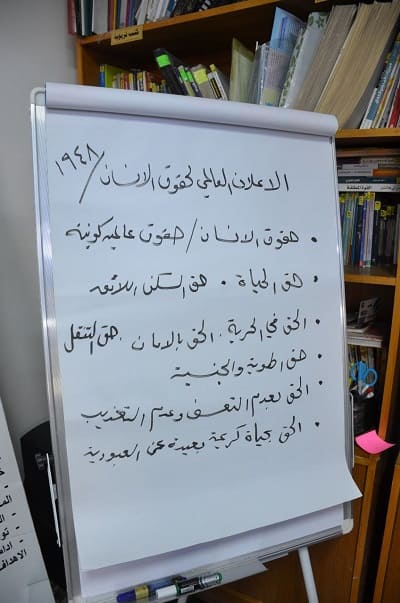 كتب تربوية
الاعلان العالمي لحقوق الانسان / ١٩٤٨
• حقوق الانسان / حقوق عالمية كونية
• حق الحياة • حق السكن اللائق
• الحق في الحرية . الحق بالامان . حق التنقل
• حق الهوية والجنسية
• الحق بعدم التعسف وعدم التعذيب
• الحق بحياة كريمة بعيدة عن العبودية
الاهداف